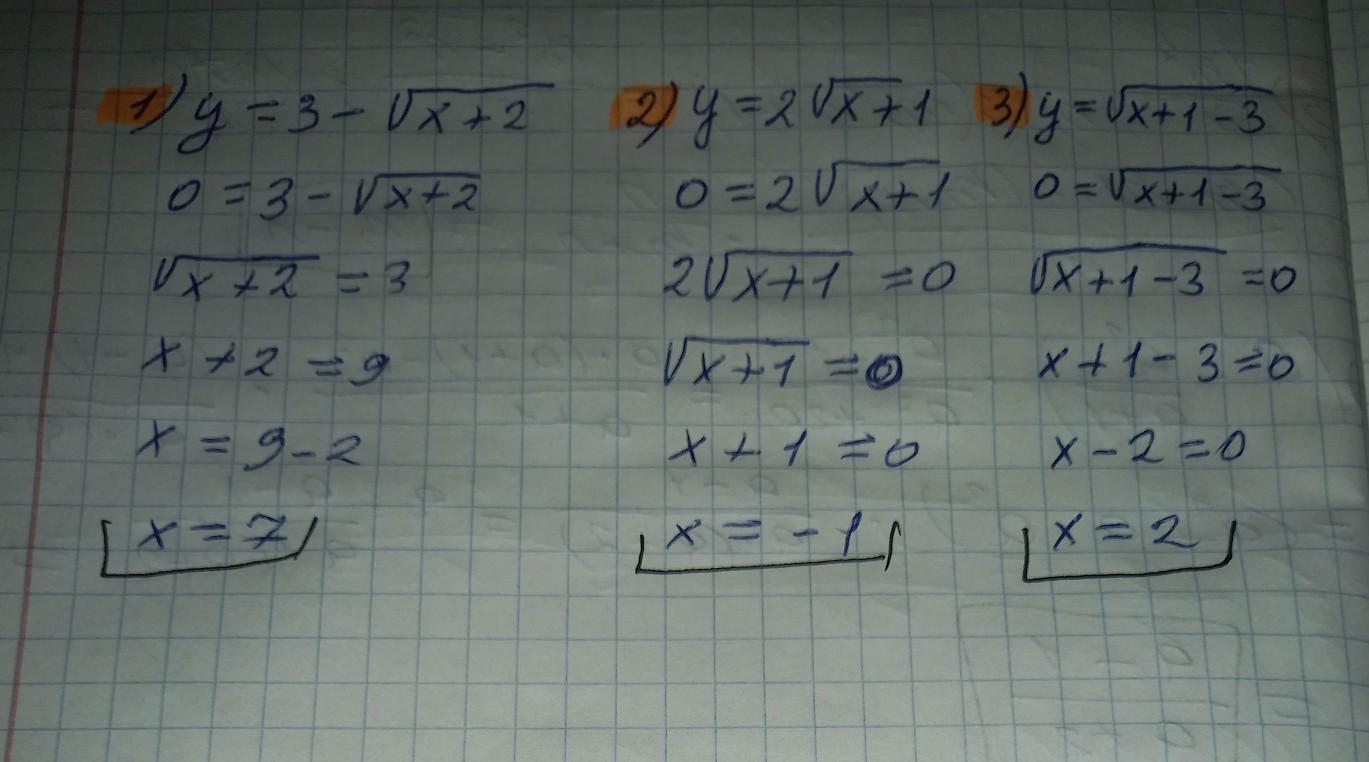 1) y = 3 - √(x+2)
0 = 3 - √(x+2)
√(x+2) = 3
x + 2 = 9
x = 9 - 2
x = 7
2) y = 2√x+1
0 = 2√(x+1)
2√(x+1) = 0
√(x+1) = 0
x + 1 = 0
x = -1
3) y = √(x+1-3)
0 = √(x+1-3)
√(x+1-3) = 0
x + 1 - 3 = 0
x - 2 = 0
x = 2